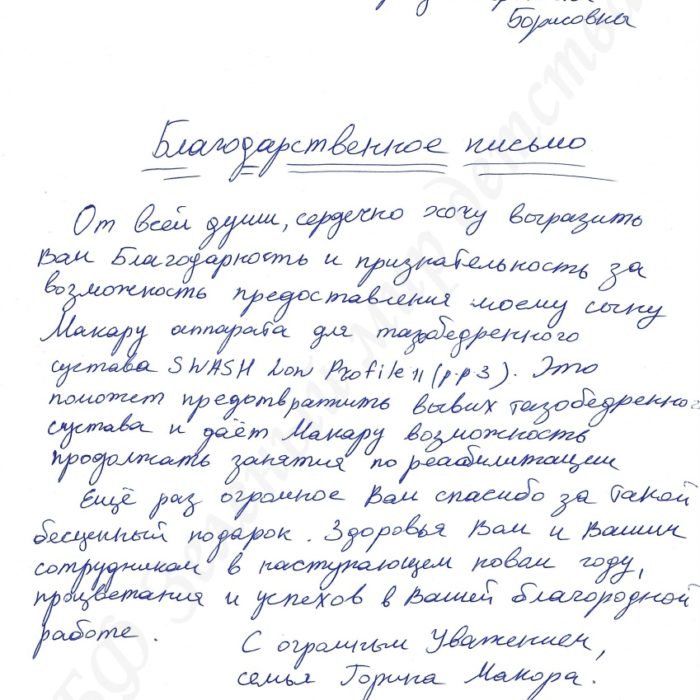 Борисовны
Благодарственное письмо
От всей души, сердечно хочу выразить
Вам Благодарность и признательность за
возможность предоставления моему сыну
Макару аппарата для тазобедренного
сустава SWASH Low Profile II (р.р 3). Это
поможет предотвратить вывих тазобедренного
сустава и даёт Макару возможность
продолжать занятия по реабилитации
Ещё раз огромное Вам спасибо за такой
бесценный подарок. Здоровья Вам и Вашим
сотрудникам в наступающем новом году,
процветания и успехов в Вашей благородной
работе.
С огромным Уважением,
семья Горина Макара.